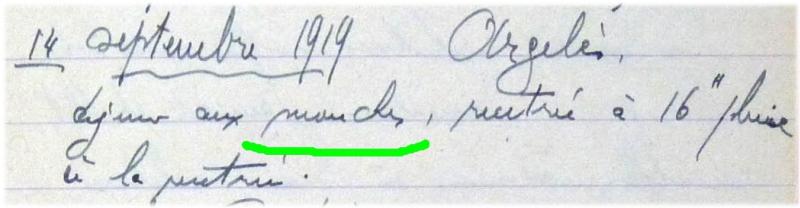 14 septembre 1919 Argelès.
déjeuner aux mouches, rentrée à 16h pluie
à la rentrée.